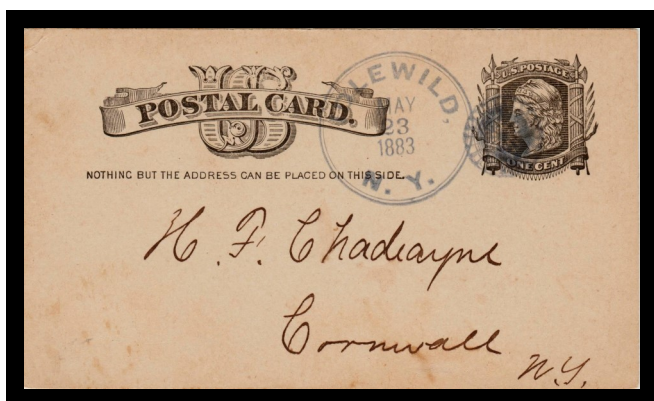 US
POSTAL CARD.
NOTHING BUT THE ADDRESS CAN BE PLACED ON THIS SIDE.
LEWILD,
MAY
23
1883
N. Y.
U.S. POSTAGE
ONE CENT
H. F. Chadeayne
Cornwall
N.Y.